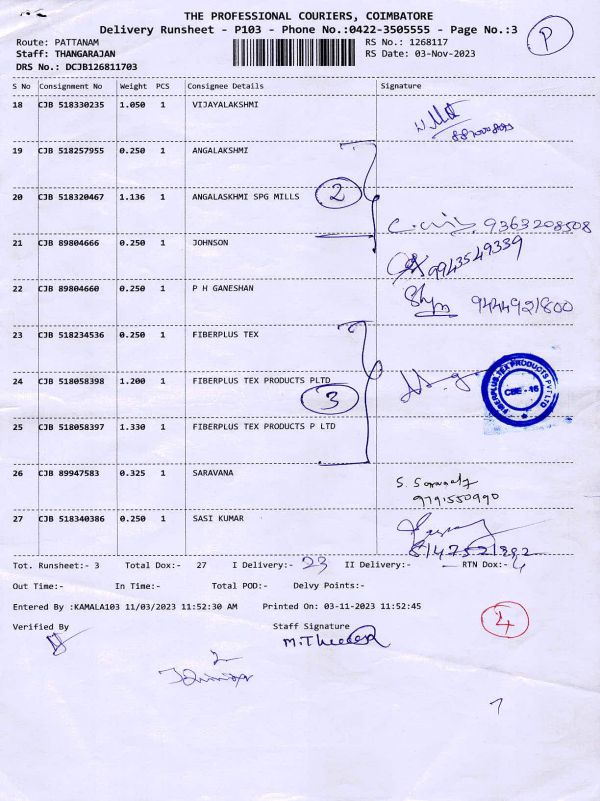 THE PROFESSIONAL COURIERS, COIMBATORE
Delivery Runsheet - P103 - Phone No.:0422-3505555 - Page No.:3
P
Route: PATTANAM RS No.: 1268117
Staff: THANGARAJAN RS Date: 03-Nov-2023
DRS No.: DCJB126811703
S No Consignment No Weight PCS Consignee Details Signature
18 CJB 518330235 1.050 1 VIJAYALAKSHMI
19 CJB 518257955 0.250 1 ANGALAKSHMI
2
20 CJB 518320467 1.136 1 ANGALASKHMI SPG MILLS
9363208508
21 CJB 89804666 0.250 1 JOHNSON
9943549339
22 CJB 89804660 0.250 1 P H GANESHAN
9444921800
23 CJB 518234536 0.250 1 FIBERPLUS TEX
24 CJB 518058398 1.200 1 FIBERPLUS TEX PRODUCTS PLTD
FIBERPLUS TEX PRODUCTS PVT LTD
CBE - 16
3
25 CJB 518058397 1.330 1 FIBERPLUS TEX PRODUCTS P LTD
26 CJB 89947583 0.325 1 SARAVANA
9791550990
27 CJB 518340386 0.250 1 SASI KUMAR
8147521892
Tot. Runsheet:- 3 Total Dox:- 27 I Delivery:- 23 II Delivery:- RTN Dox:- 4
Out Time:- In Time:- Total POD:- Delvy Points:-
Entered By :KAMALA103 11/03/2023 11:52:30 AM Printed On: 03-11-2023 11:52:45
4
Verified By Staff Signature